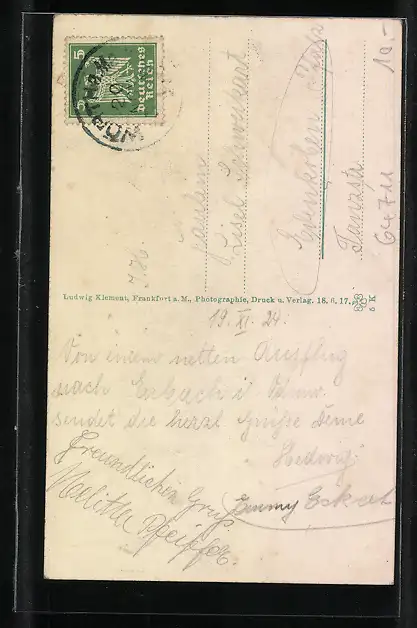 5
Deutsches
Reich
Fräulein
Liesel
Edenkoben
Pfalz
Tanzstr.
10-
64711
Ludwig Klement, Frankfurt a. M., Photographie, Druck u. Verlag. 18. 6. 17.
5 K
19. XI. 24.
Von einem netten Ausflug
nach Erbach i. Odenw.
sendet die herzl Grüße Deine
Hedwig
Freundlichen Gruß
Melitta Pfeiffer.
Emmy Eckert